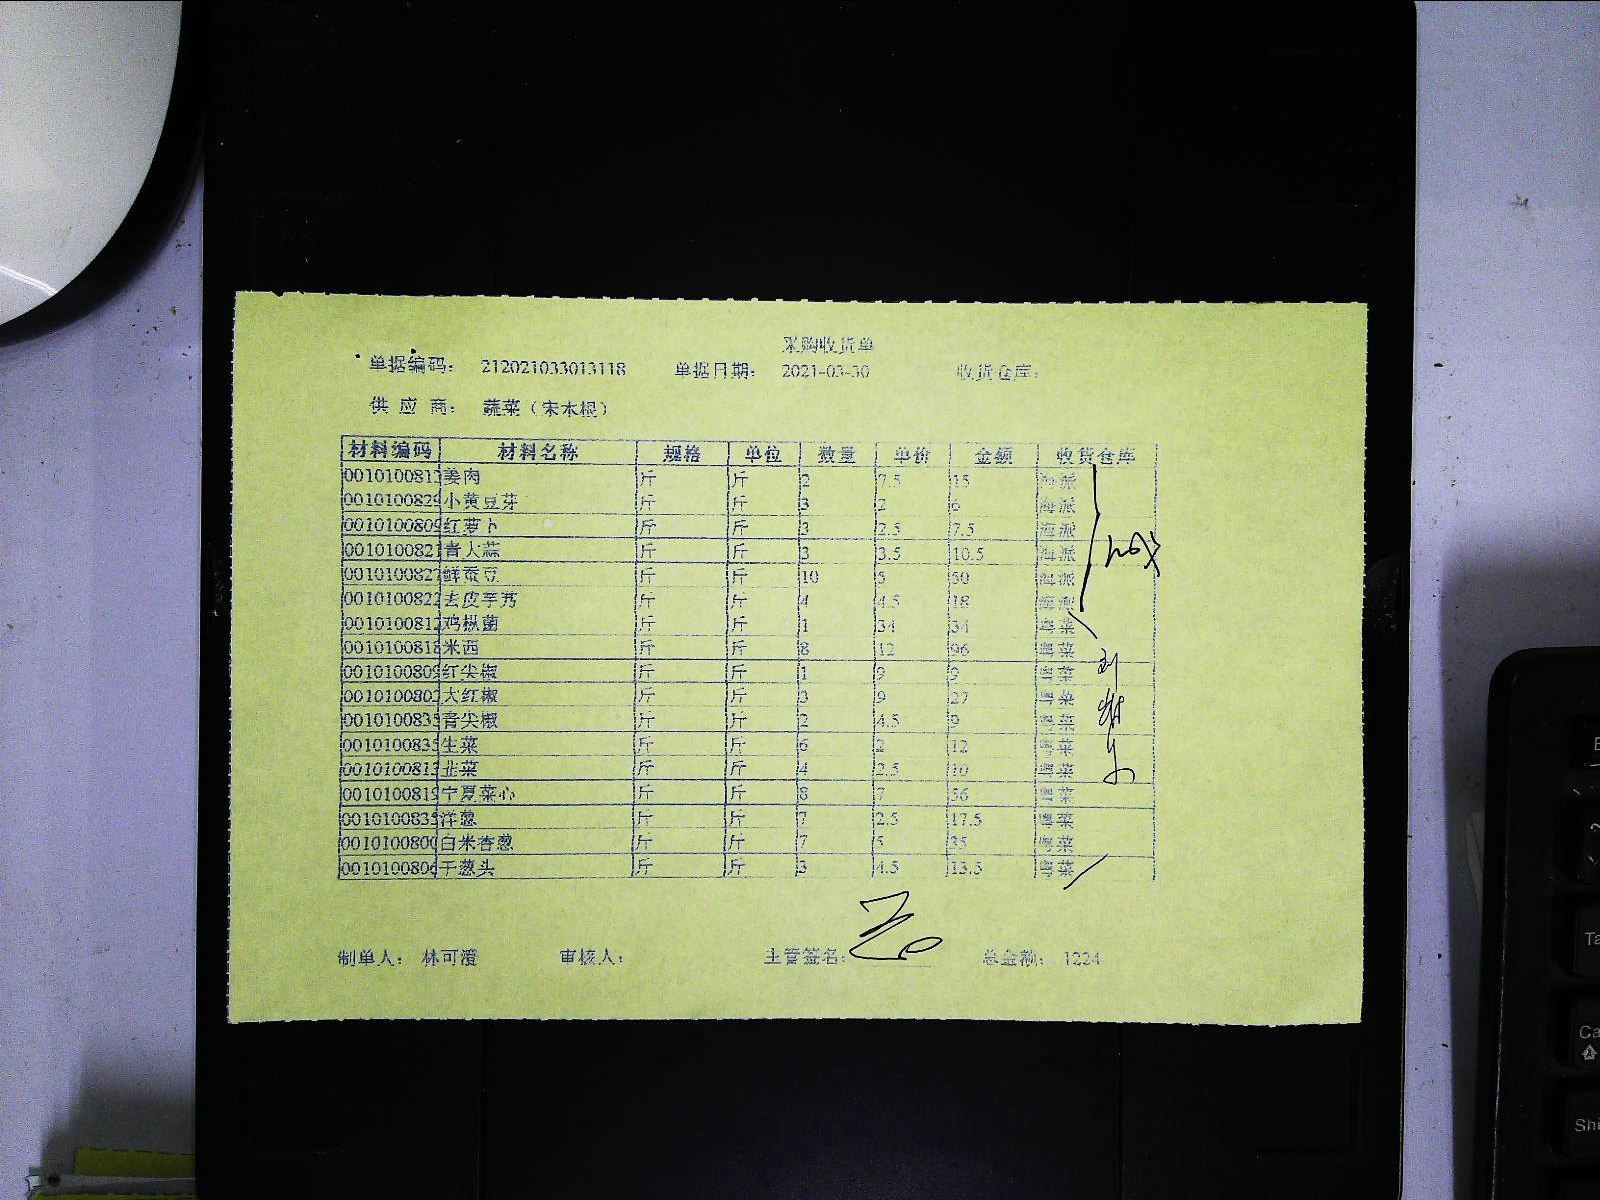 采购收货单
单据编码： 212021033013118 单据日期： 2021-03-30 收货仓库：
供 应 商： 蔬菜（宋本根）
材料编码 材料名称 规格 单位 数量 单价 金额 收货仓库
001010081 姜肉 斤 斤 2 7.5 15 海派
001010082 小黄豆芽 斤 斤 3 2 6 海派
001010080 红萝卜 斤 斤 3 2.5 7.5 海派
001010082 青大蒜 斤 斤 3 3.5 10.5 海派
001010082 鲜蚕豆 斤 斤 10 5 50 海派
001010082 去皮芋艿 斤 斤 4 4.5 18 海派
001010081 鸡枞菌 斤 斤 1 34 34 粤菜
001010081 米西 斤 斤 8 12 96 粤菜
001010080 红尖椒 斤 斤 1 9 9 粤菜
001010080 大红椒 斤 斤 3 9 27 粤菜
001010083 青尖椒 斤 斤 2 4.5 9 粤菜
001010083 生菜 斤 斤 6 2 12 粤菜
001010081 韭菜 斤 斤 4 2.5 10 粤菜
001010081 宁夏菜心 斤 斤 8 7 56 粤菜
001010083 洋葱 斤 斤 7 2.5 17.5 粤菜
001010080 白米香葱 斤 斤 7 5 35 粤菜
001010080 干葱头 斤 斤 3 4.5 13.5 粤菜
制单人： 林可澄 审核人： 主管签名： 总金额： 1224